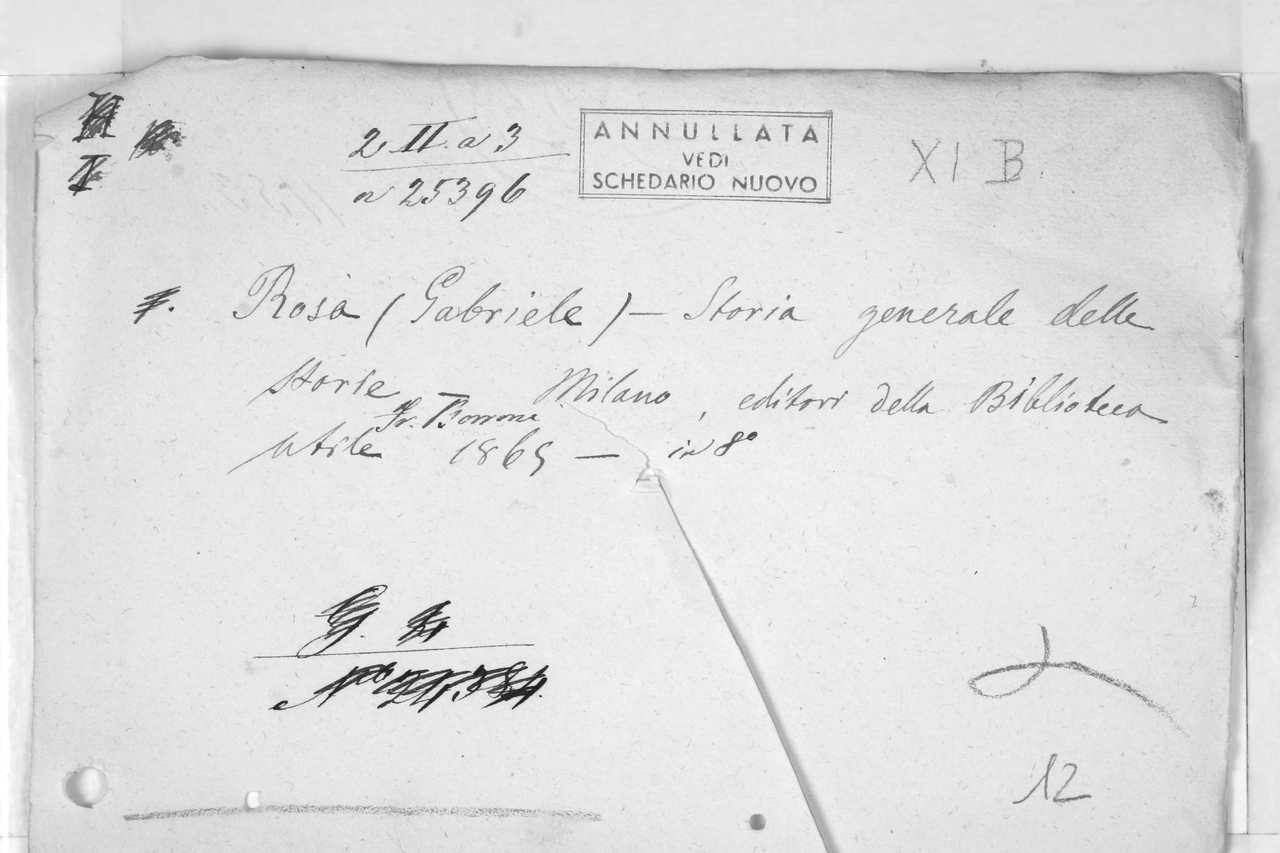 2 II. a 3
a 25396
ANNULLATA
VEDI
SCHEDARIO NUOVO
XI B.
Rosa (Gabriele) — Storia generale delle
storie Milano, editori della Biblioteca
utile 1865 — in 8°
12